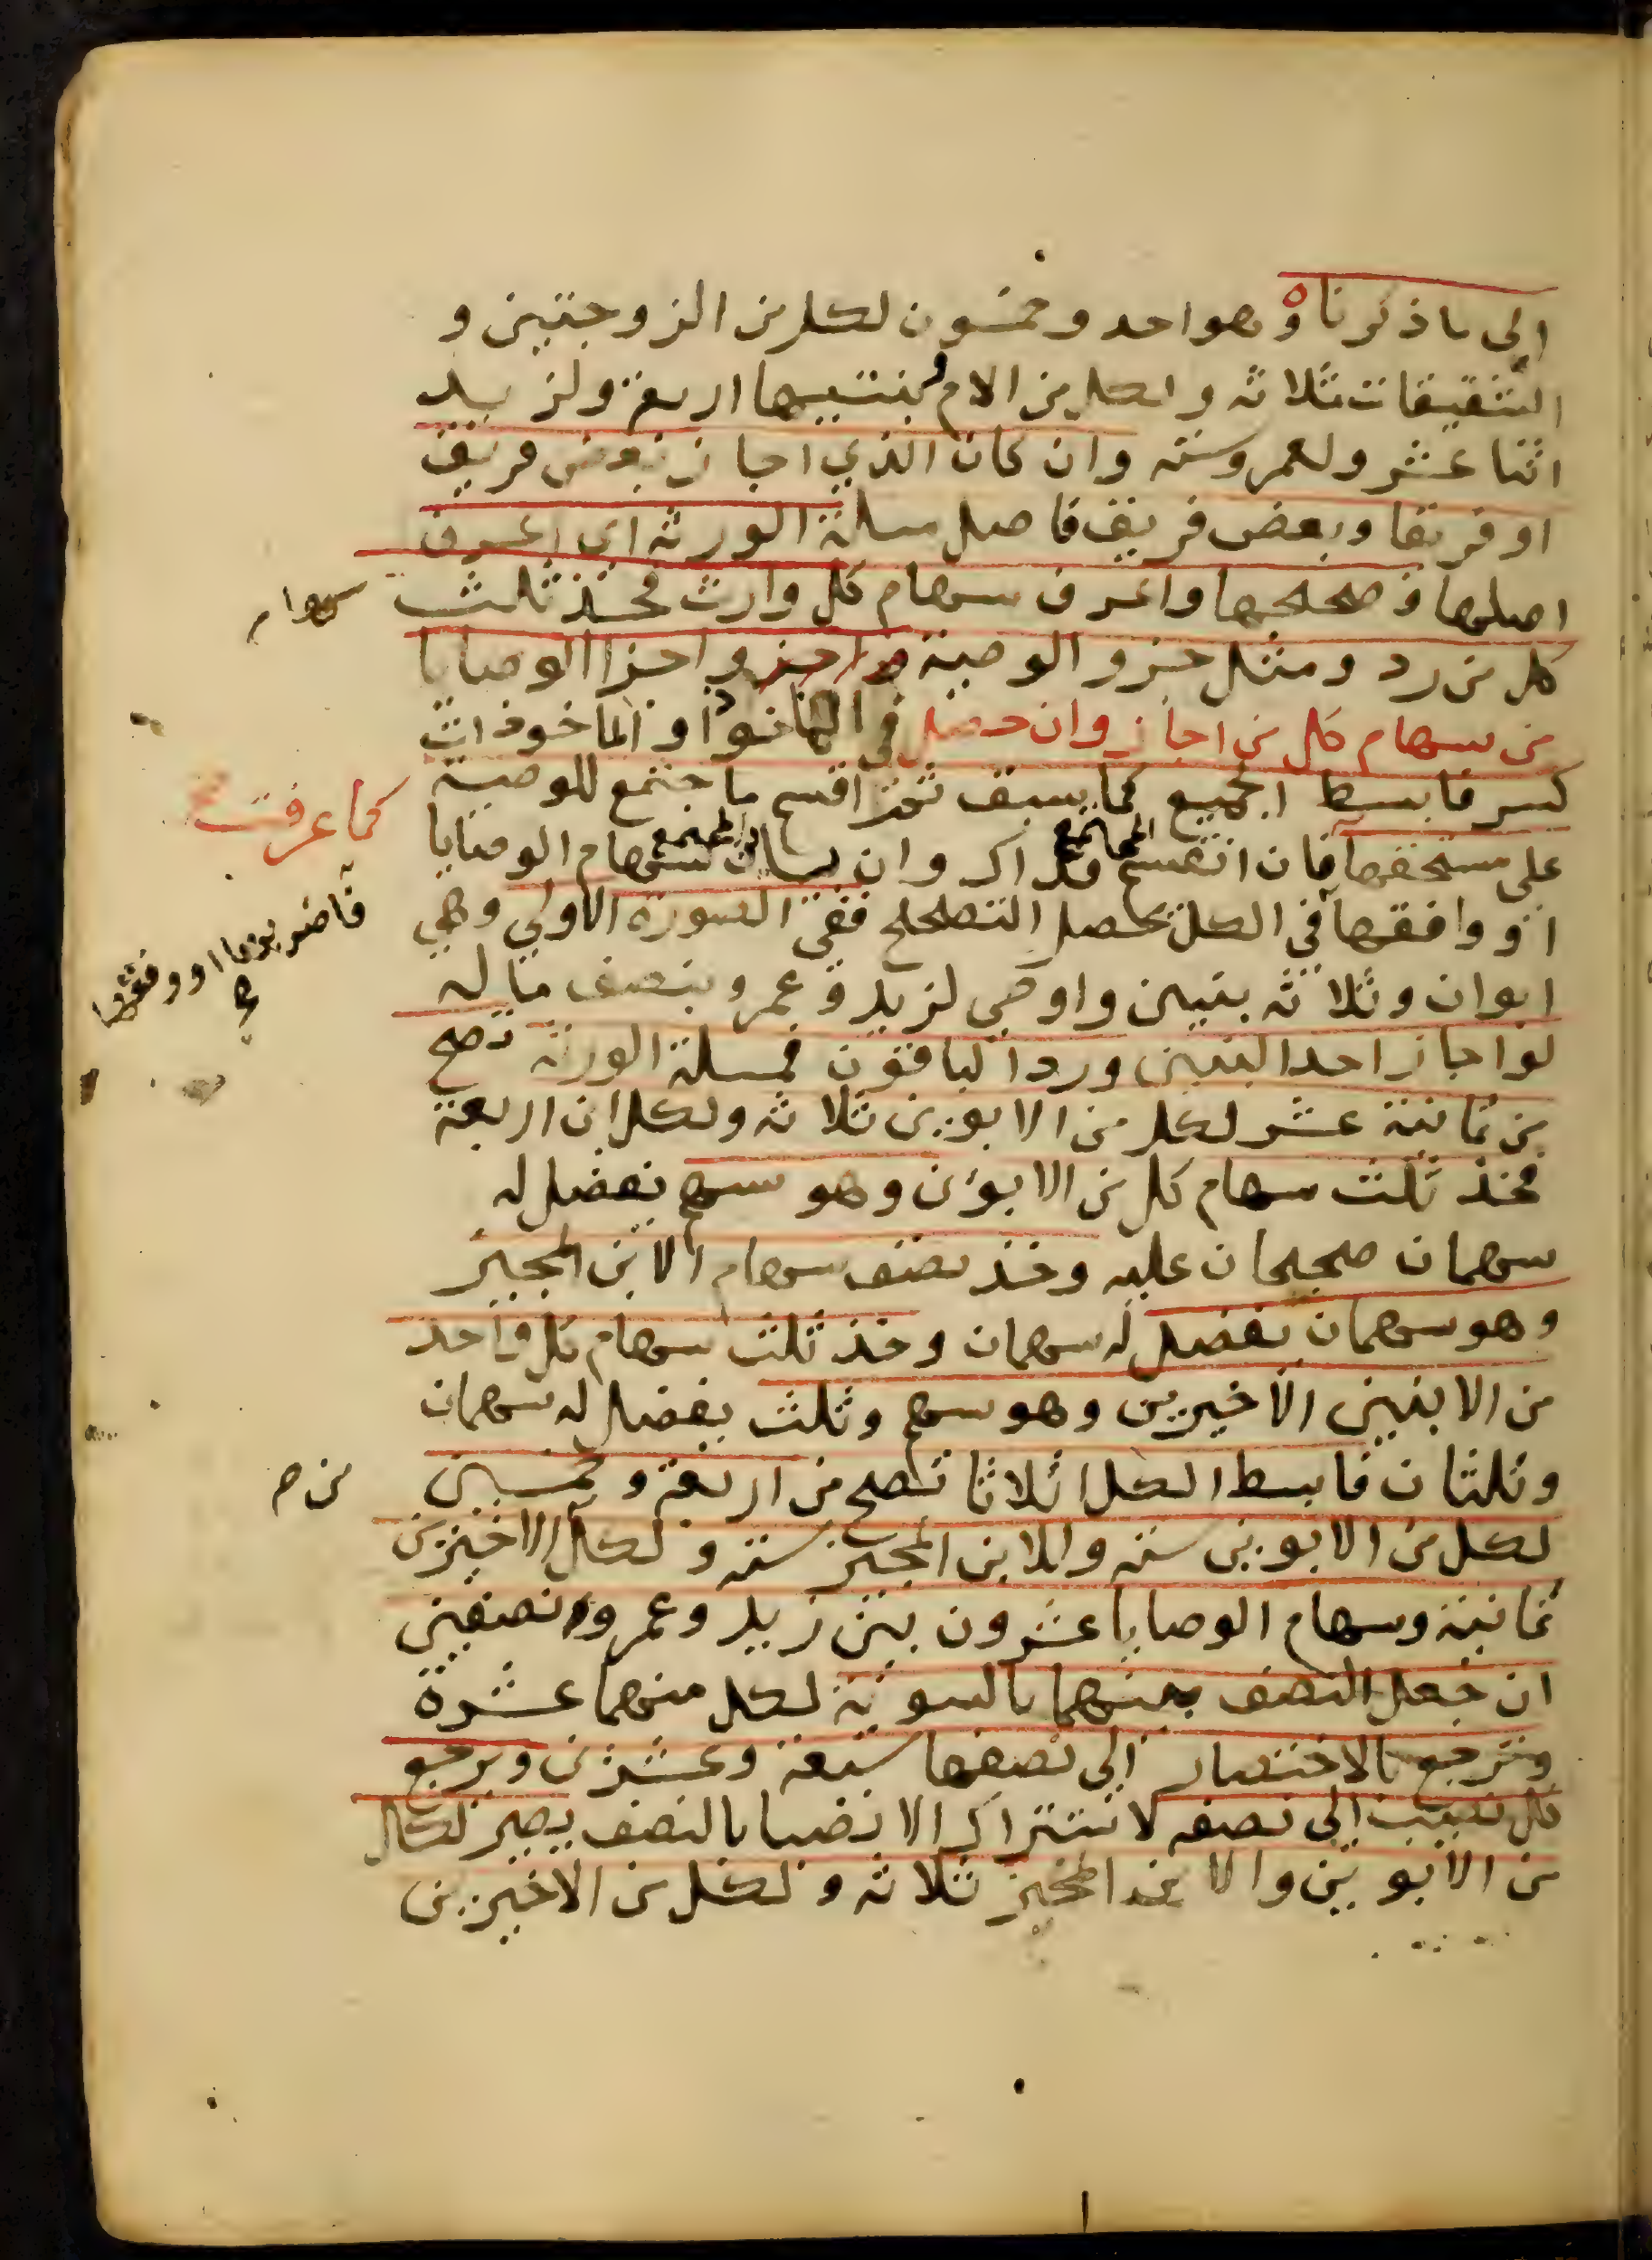 الى ما ذكرناه وهو احد وخمسون لكل من الزوجتين و
الشقيقات ثلاثة ولكل من الام وبنتيها اربعة ولزيد
اثنا عشر ولعمرو ستة وان كان الذي اجاز بعض فريق
او فريقا وبعض فريق فاصل مسلة الورثة اي اعرف
اصلها وصححها واعرف سهام كل وارث فخذ ثلث
سهام
كل من رد ومثل جزو الوصية او اجزا الوصايا
من سهام كل من اجاز وان حصل في الماخوذ او الماخوذات
كسر فابسط الجميع كما سبق ثم اقسم ما اجتمع للوصية
كما عرفت
على مستحقها فان انقسم المجتمع فذاك وان باين المجتمع سهام الوصايا
او وافقها في الكل يحصل التصحيح ففي الصورة الاولى وهي
فاضربها او وفقها
ابوان وثلاثة بنين واوصى لزيد وعمرو بنصف ماله
لو اجاز احد البنين ورد الباقون فمسلة الورثة تصح
من ثمانية عشر لكل من الابوين ثلاثة ولكل ابن اربعة
فخذ ثلث سهام كل من الابوين وهو سهم يفضل له
سهمان صحيحان عليه وخذ نصف سهام الابن المجيز
وهو سهمان يفضل له سهمان وخذ ثلث سهام كل واحد
من الابنين الاخيرين وهو سهم وثلث يفضل له سهمان
وثلثان فابسط الكل اثلاثا تصح من اربعة وخمسين
لكل من الابوين ستة وللابن المجيز ستة ولكل الاخيرين
من
ثمانية وسهام الوصايا عشرون بين زيد وعمرو نصفين
ان جعل النصف بينهما بالسوية لكل منهما عشرة
وترجع بالاختصار الى نصفها سبعة وعشرين ويرجع
كل نصيب الى نصفه لاشتراك الانصبا بالنصف يصير لكل
من الابوين والابن المجيز ثلاثة ولكل من الاخيرين